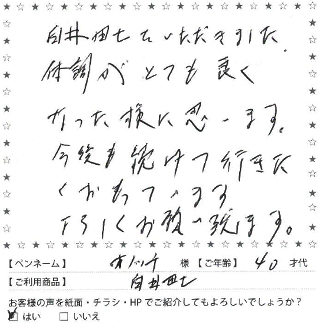 白井田七をいただきました
体調がとても良く
なった様に思います。
今後も続けて行きた
くおもっています
よろしくお願い致します。
【ペンネーム】 様 【ご年齢】 40 才代
【ご利用商品】 白井田七
お客様の声を紙面・チラシ・HPでご紹介してもよろしいでしょうか？
はい いいえ